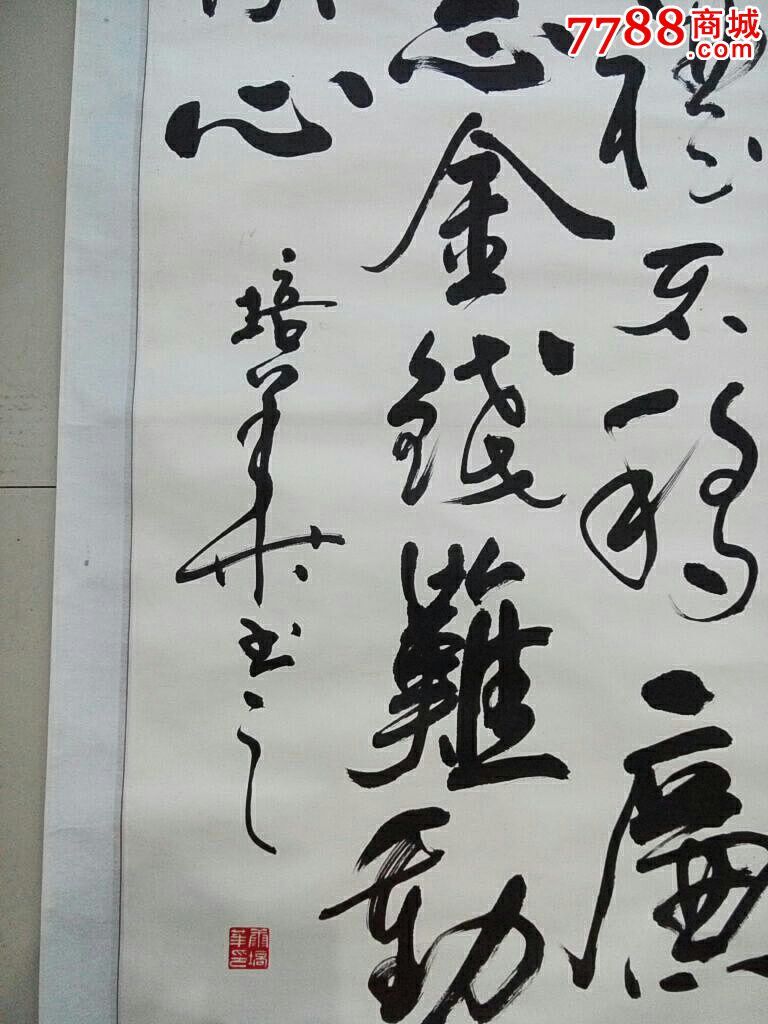 7788商城
.com
不移廉
志金錢難動
心
培華书之